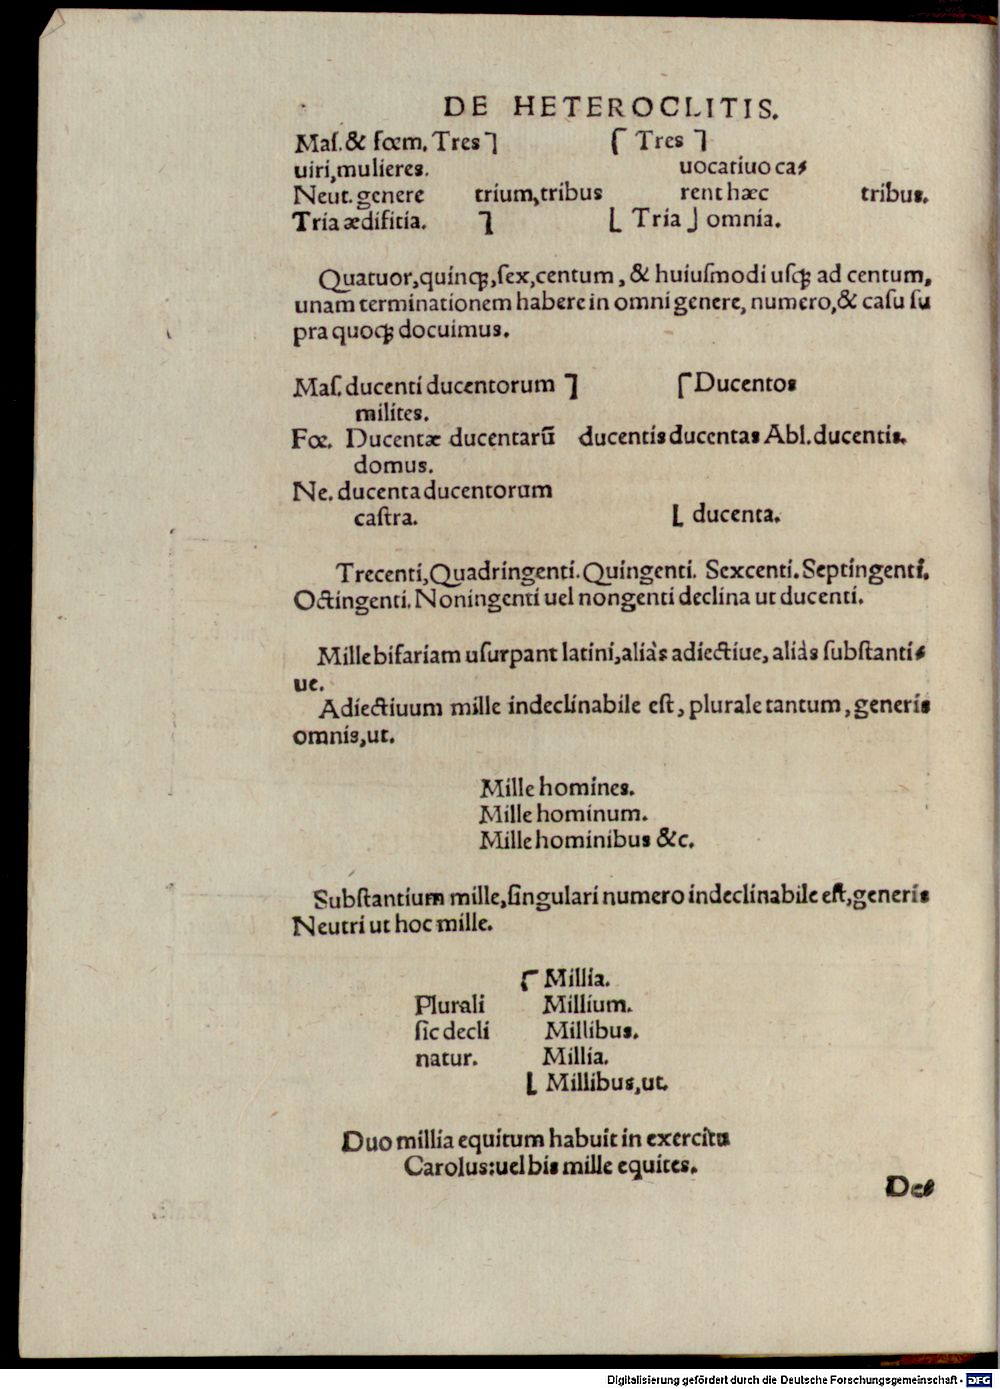 DE HETEROCLITIS.
Maſ. & fœm. Tres ⌉ ⌈ Tres ⌉
uiri, mulieres. uocatiuo ca⸗
Neut. genere trium, tribus rent hæc tribus.
Tria ædificia. ⌉ ⌊ Tria ⌋ omnia.
Quatuor, quinqꝫ, ſex, centum, & huiuſmodi uſqꝫ ad centum,
unam terminationem habere in omni genere, numero, & caſu ſu
pra quoqꝫ docuimus.
Maſ. ducenti ducentorum ⌉ ⌈ Ducentos
milites.
Fœ. Ducentæ ducentarũ ducentis ducentas Abl. ducentis.
domus.
Ne. ducenta ducentorum
caſtra. ⌊ ducenta.
Trecenti, Quadringenti. Quingenti. Sexcenti. Septingenti.
Octingenti. Noningenti uel nongenti declina ut ducenti.
Mille bifariam uſurpant latini, aliàs adiectiue, aliàs ſubſtanti⸗
ue.
Adiectiuum mille indeclinabile eſt, plurale tantum, generis
omnis, ut.
Mille homines.
Mille hominum.
Mille hominibus &c.
Subſtantium mille, ſingulari numero indeclinabile eſt, generis
Neutri ut hoc mille.
⌈ Millia.
Plurali Millium.
ſic decli Millibus.
natur. Millia.
⌊ Millibus, ut.
Duo millia equitum habuit in exercitu
Carolus: uel bis mille equites.
De⸗
Digitalisierung gefördert durch die Deutsche Forschungsgemeinschaft - DFG